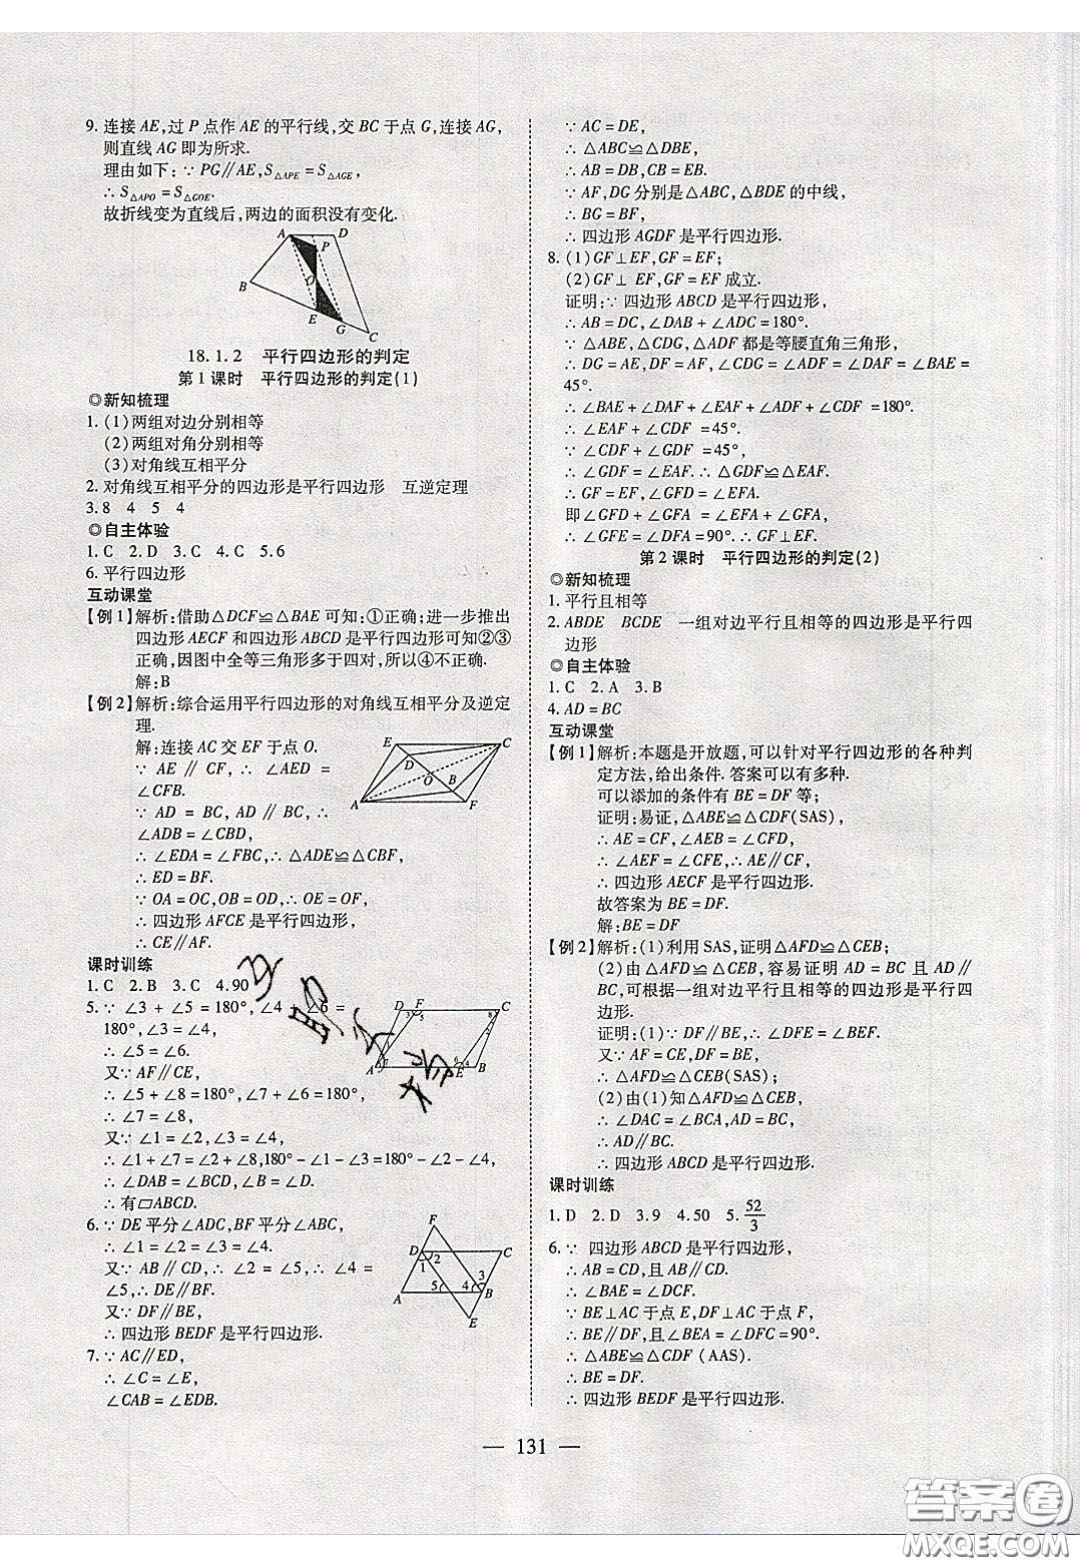 9. 连接 AE,过 P 点作 AE 的平行线,交 BC 于点 G,连接 AG,
则直线 AG 即为所求.
理由如下:∵ PG∥AE,S△APE = S△AGE,
∴ S△APO = S△GOE.
故折线变为直线后,两边的面积没有变化.
A D P B O E G C
18.1.2 平行四边形的判定
第 1 课时 平行四边形的判定(1)
◎新知梳理
1. (1)两组对边分别相等
(2)两组对角分别相等
(3)对角线互相平分
2. 对角线互相平分的四边形是平行四边形 互逆定理
3.8 4 5 4
◎自主体验
1. C 2. D 3. C 4. C 5.6
6. 平行四边形
互动课堂
【例 1】解析:借助△DCF≌△BAE 可知:①正确;进一步推出
四边形 AECF 和四边形 ABCD 是平行四边形可知②③
正确,因图中全等三角形多于四对,所以④不正确.
解:B
【例 2】解析:综合运用平行四边形的对角线互相平分及逆定
理.
解:连接 AC 交 EF 于点 O.
∵ AE ∥ CF,∴ ∠AED =
∠CFB.
∵ AD = BC, AD ∥ BC,∴
∠ADB = ∠CBD,
∴ ∠EDA = ∠FBC,∴ △ADE≌△CBF,
∴ ED = BF.
∵ OA = OC,OB = OD,∴ OE = OF,
∴ 四边形 AFCE 是平行四边形,
∴ CE∥AF.
E C D O B A F
课时训练
1. C 2. B 3. C 4.90
5. ∵ ∠3 + ∠5 = 180°,∠4 + ∠6 =
180°,∠3 = ∠4,
∴ ∠5 = ∠6.
又∵ AF∥CE,
∴ ∠5 + ∠8 = 180°,∠7 + ∠6 = 180°,
∴ ∠7 = ∠8,
又∵ ∠1 = ∠2,∠3 = ∠4,
∴ ∠1 + ∠7 = ∠2 + ∠8,180 - ∠1 - ∠3 = 180 - ∠2 - ∠4,
∴ ∠DAB = ∠BCD,∠D = ∠B,
∴ 有▱ABCD.
D F C A E B
6. ∵ DE 平分∠ADC,BF 平分∠ABC,
∴ ∠1 = ∠2 = ∠3 = ∠4.
又∵ AB ∥ CD,∴ ∠2 = ∠5,∠4 =
∠5,∴ DE∥BF.
又∵ DF∥BE,
∴ 四边形 BEDF 是平行四边形.
F D 2 C 1 3 5 4 A B E
7. ∵ AC∥ED,
∴ ∠C = ∠E,
∠CAB = ∠EDB.
∵ AC = DE,
∴ △ABC≌△DBE,
∴ AB = DB,CB = EB.
∵ AF,DG 分别是△ABC,△BDE 的中线,
∴ BG = BF,
∴ 四边形 AGDF 是平行四边形.
8. (1) GF⊥EF,GF = EF;
(2) GF⊥ EF,GF = EF 成立.
证明:∵ 四边形 ABCD 是平行四边形,
∴ AB = DC,∠DAB + ∠ADC = 180°.
∵ △ABE,△CDG,△ADF 都是等腰直角三角形,
∴ DG = AE,DF = AF,∠CDG = ∠ADF = ∠DAF = ∠BAE =
45°.
∴ ∠BAE + ∠DAF + ∠EAF + ∠ADF + ∠CDF = 180°.
∴ ∠EAF + ∠CDF = 45°.
∵ ∠CDF + ∠GDF = 45°,
∴ ∠GDF = ∠EAF. ∴ △GDF≌△EAF.
∴ GF = EF,∠GFD = ∠EFA.
即∠GFD + ∠GFA = ∠EFA + ∠GFA,
∴ ∠GFE = ∠DFA = 90°. ∴ GF⊥EF.
第 2 课时 平行四边形的判定(2)
◎新知梳理
1. 平行且相等
2. ABDE BCDE 一组对边平行且相等的四边形是平行四
边形
◎自主体验
1. C 2. A 3. B
4. AD = BC
互动课堂
【例 1】解析:本题是开放题,可以针对平行四边形的各种判
定方法,给出条件. 答案可以有多种.
可以添加的条件有 BE = DF 等;
证明:易证,△ABE≌△CDF(SAS),
∴ AE = CF,∠AEB = ∠CFD,
∴ ∠AEF = ∠CFE,∴ AE∥CF,
∴ 四边形 AECF 是平行四边形.
故答案为 BE = DF.
解:BE = DF
【例 2】解析:(1)利用 SAS,证明△AFD≌△CEB;
(2)由△AFD≌△CEB,容易证明 AD = BC 且 AD∥
BC,可根据一组对边平行且相等的四边形是平行四
边形.
证明:(1)∵ DF∥BE,∴ ∠DFE = ∠BEF.
又∵ AF = CE,DF = BE,
∴ △AFD≌△CEB(SAS);
(2)由(1)知△AFD≌△CEB,
∴ ∠DAC = ∠BCA,AD = BC,
∴ AD∥BC.
∴ 四边形 ABCD 是平行四边形.
课时训练
1. D 2. D 3.9 4.50 5. 52/3
6. ∵ 四边形 ABCD 是平行四边形,
∴ AB = CD,且 AB∥CD.
∴ ∠BAE = ∠DCF.
∵ BE⊥AC 于点 E,DF⊥AC 于点 F,
∴ BE∥DF,且∠BEA = ∠DFC = 90°.
∴ △ABE≌△CDF (AAS).
∴ BE = DF.
∴ 四边形 BEDF 是平行四边形.
— 131 —
答案圈
MXQE.COM